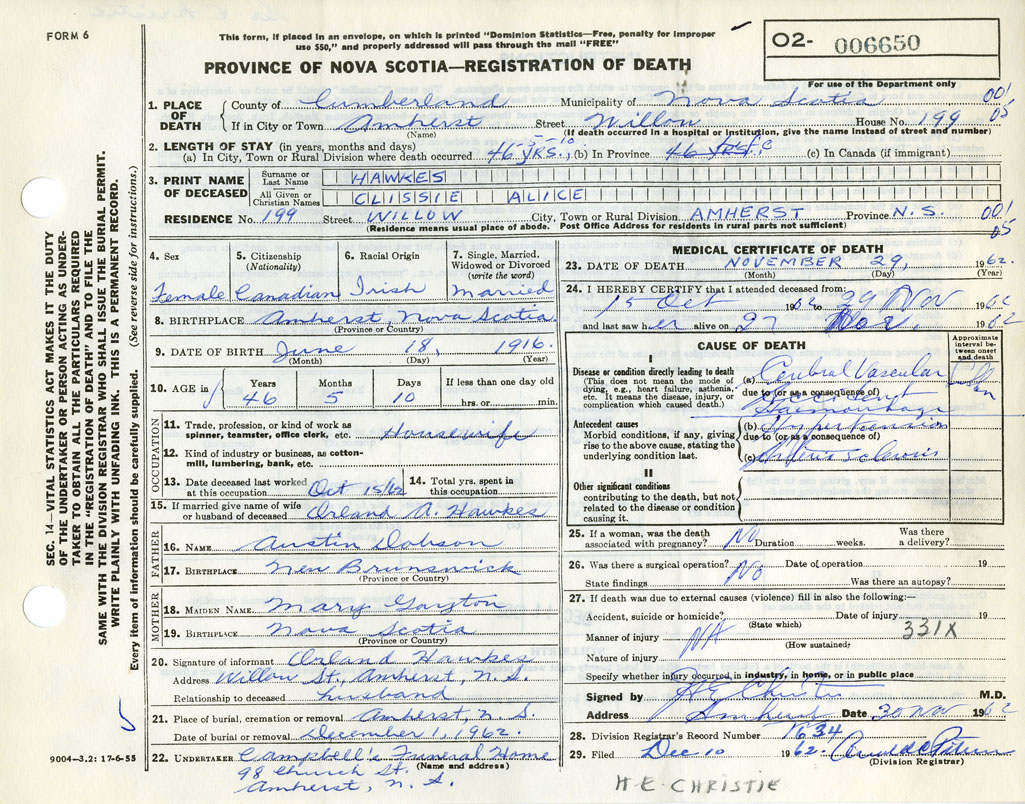 FORM 6
This form, if placed in an envelope, on which is printed "Dominion Statistics—Free, penalty for improper
use $50," and properly addressed will pass through the mail "FREE"
O2- 006650
For use of the Department only
PROVINCE OF NOVA SCOTIA—REGISTRATION OF DEATH
1. PLACE OF DEATH
County of Cumberland Municipality of Nova Scotia 001
If in City or Town Amherst Street Willow House No. 199 05
(Name) (If death occurred in a hospital or institution, give the name instead of street and number)
2. LENGTH OF STAY (in years, months and days)
(a) In City, Town or Rural Division where death occurred 46 YRS. (b) In Province 46 (c) In Canada (if immigrant)
3. PRINT NAME OF DECEASED
Surname or Last Name HAWKES
All Given or Christian Names CLISSIE ALICE
RESIDENCE No. 199 Street WILLOW City, Town or Rural Division AMHERST Province N.S. 001
05
(Residence means usual place of abode. Post Office Address for residents in rural parts not sufficient)
SEC. 14—VITAL STATISTICS ACT MAKES IT THE DUTY
OF THE UNDERTAKER OR PERSON ACTING AS UNDER-
TAKER TO OBTAIN ALL THE PARTICULARS REQUIRED
IN THE "REGISTRATION OF DEATH" AND TO FILE THE
SAME WITH THE DIVISION REGISTRAR WHO SHALL ISSUE THE BURIAL PERMIT.
WRITE PLAINLY WITH UNFADING INK. THIS IS A PERMANENT RECORD.
Every item of information should be carefully supplied. (See reverse side for instructions.)
4. Sex
Female
5. Citizenship (Nationality)
Canadian
6. Racial Origin
Irish
7. Single, Married, Widowed or Divorced (write the word)
Married
8. BIRTHPLACE Amherst, Nova Scotia
(Province or Country)
9. DATE OF BIRTH June 18, 1916.
(Month) (Day) (Year)
10. AGE in Years Months Days If less than one day old
46 5 10 hrs. or min.
OCCUPATION
11. Trade, profession, or kind of work as
spinner, teamster, office clerk, etc. Housewife
12. Kind of industry or business, as cotton-
mill, lumbering, bank, etc.
13. Date deceased last worked
at this occupation Oct 15/62
14. Total yrs. spent in
this occupation
15. If married give name of wife
or husband of deceased Orland A. Hawkes
FATHER
16. NAME Austin Dobson
17. BIRTHPLACE New Brunswick
(Province or Country)
MOTHER
18. MAIDEN NAME Mary Gayton
19. BIRTHPLACE Nova Scotia
(Province or Country)
20. Signature of informant Orland Hawkes
Address Willow St., Amherst, N.S.
Relationship to deceased husband
21. Place of burial, cremation or removal Amherst, N.S.
Date of burial or removal December 1, 1962.
22. UNDERTAKER Campbell's Funeral Home
(Name and address)
98 Church St.
Amherst, N.S.
9004—3.2: 17-6-55
MEDICAL CERTIFICATE OF DEATH
23. DATE OF DEATH NOVEMBER 29, 1962.
(Month) (Day) (Year)
24. I HEREBY CERTIFY that I attended deceased from:
15 Oct 1962 29 Nov 1962
and last saw her alive on 27 Nov. 1962
CAUSE OF DEATH
Approximate interval between onset and death
I
Disease or condition directly leading to death
(This does not mean the mode of
dying, e.g., heart failure, asthenia,
etc. It means the disease, injury, or
complication which caused death.)
(a) Cerebral Vascular
due to (or as a consequence of)
Accident
Haemorrhage
Antecedent causes
Morbid conditions, if any, giving
rise to the above cause, stating the
underlying condition last.
(b) Hypertension
due to (or as a consequence of)
(c) Arteriosclerosis
II
Other significant conditions
contributing to the death, but not
related to the disease or condition
causing it.
25. If a woman, was the death
associated with pregnancy? NO Duration weeks. Was there a delivery?
26. Was there a surgical operation? No Date of operation 19
State findings Was there an autopsy?
27. If death was due to external causes (violence) fill in also the following:—
Accident, suicide or homicide? Date of injury 19
(State which) 331X
Manner of injury N/A
(How sustained)
Nature of injury
Specify whether injury occurred in industry, in home, or in public place
Signed by H E Christie M.D.
Address Amherst Date 30 Nov 1962
28. Division Registrar's Record Number 1634
29. Filed Dec 10 1962.
(Division Registrar)
H.E. CHRISTIE